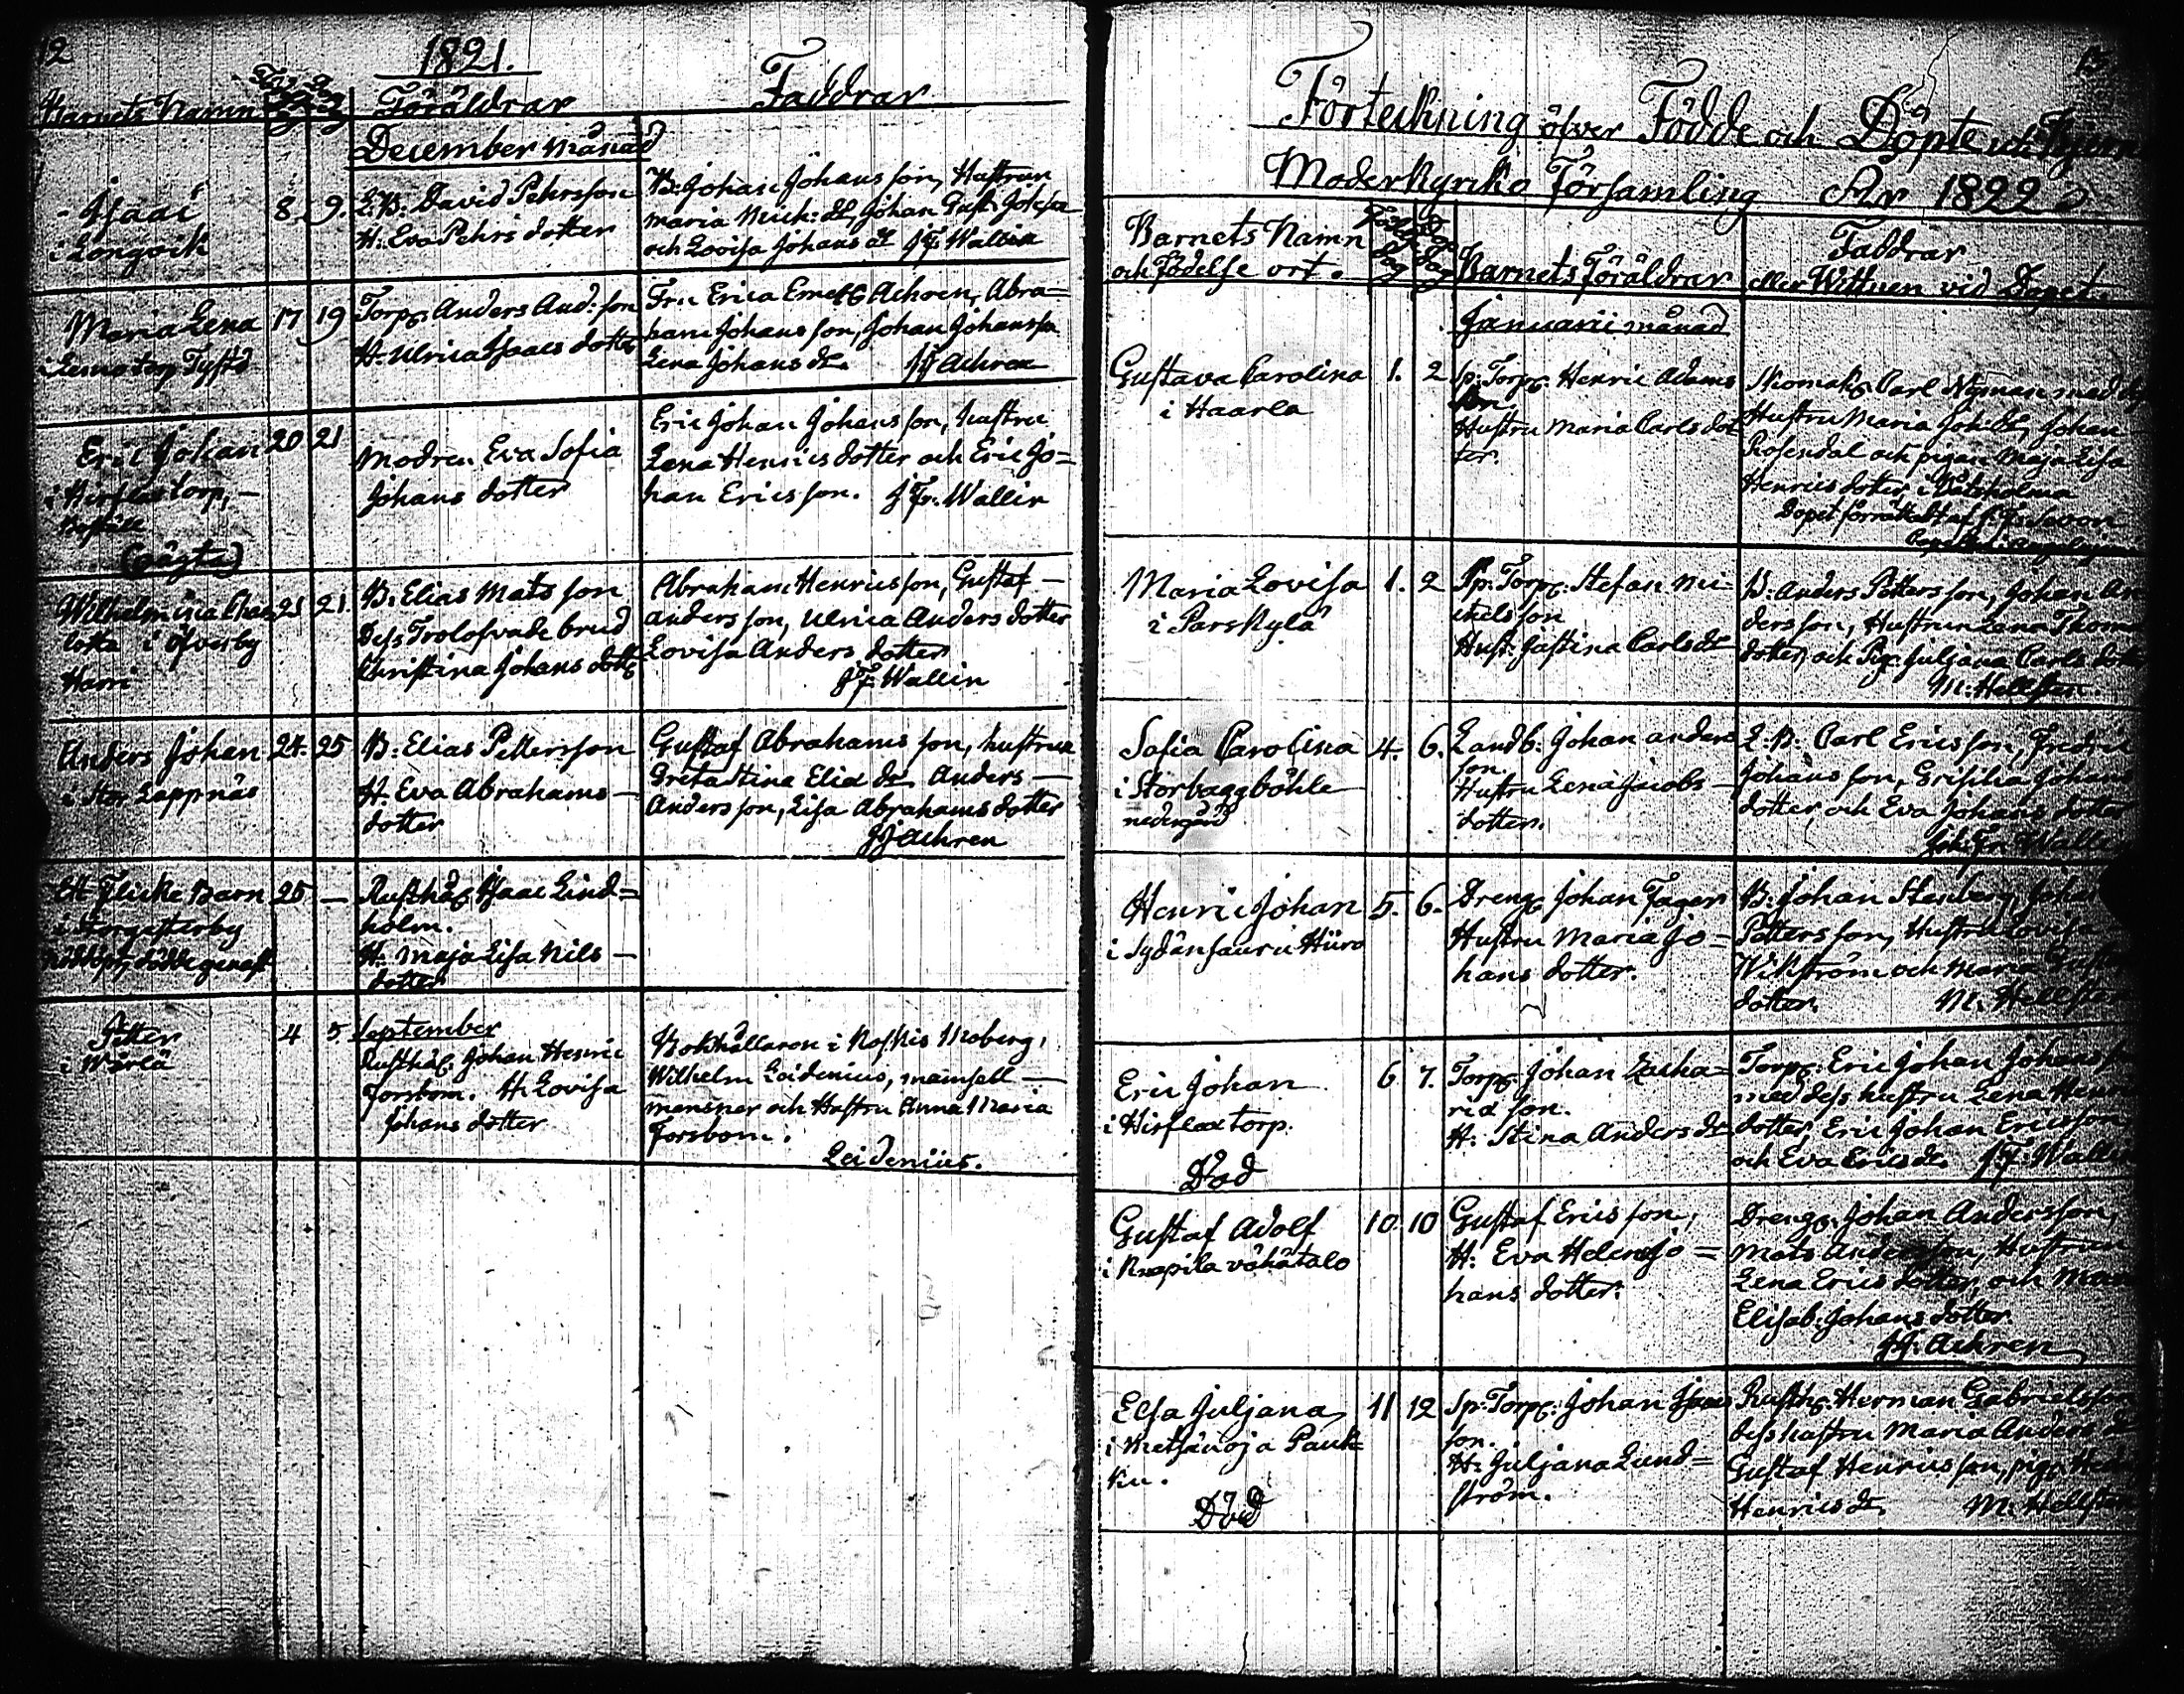 12
1821.
Barnets Namn
Föräldrar
Faddrar
December månad
Isaac
i Longvik
8. 9.
L:B: David Pehrsson
H: Eva Pehrs dotter
B: Johan Johansson, Hustrun
Maria Mich: dr, Johan
och Lovisa Johans dr JF: Wallin
Maria Lena
17 19
Torp: Anders And: son
H: Ulrica Isaacs dotter
Fru Erica Achren, Abra=
ham Johansson, Johan Johansson
Lena Johans dr. JJ Achren
Eric Johan
i Hirflax torp,
(oägta)
20 21
Modren Eva Sofia
Johans dotter
Eric Johan Johansson, hustru
Lena Henrics dotter och Eric Jo=
han Ericsson. J Fr. Wallin
Wilhelmina Char
lotta i Öfverby
Harri
21 21
B: Elias Matsson
Dess Trolofvade brud
Christina Johans dotter
Abraham Henricsson, Gustaf —
Andersson, Ulrica Anders dotter
Lovisa Anders dotter
JF: Wallin
Anders Johan
i Stor Lappnäs
24. 25
B: Elias Pettersson
H. Eva Abrahams —
dotter
Gustaf Abrahams son, hustrun
Greta Stina Elia dr Anders —
Andersson, Lisa Abrahams dotter
JJ Achren
Ett Flicke Barn
i Torgesterby
nöddöpt, dödde genast
25 —
Rusthåll: Isaac Lind=
holm.
H: Maja Lisa Nils —
dotter
Petter
i Wärlä
4 5
September
Rusthåll: Johan Henric
Forsbom. H: Lovisa
Johans dotter
Bokhållaren i Koskis Moberg,
Wilhelm Leidenius, mamsell —
mensner och Hustru Anna Maria
Forsbom.
Leidenius.
Förteckning öfver Födde och Döpte uti
Moderkyrko Församling År 1822
Barnets Namn
och födelse ort.
Barnets Föräldrar
Faddrar
eller Wittnen vid Dopet.
Januarii månad
Gustava Carolina
i Haarla
1. 2
Sp: Torp: Henric Adams
son
Hustru Maria Carls dot
ter.
Skomak: Carl Nyman med
Hustru Maria Joh: dr, Johan
Rosendal och pigan Maja Lisa
Henrics dotter i
Dopet förrättadt af
Maria Lovisa
i Parskylä
1. 2
Sp: Torp: Stefan Mi-
chelsson
Hust: Justina Carlsdr
B: Anders Pettersson, Johan An
dersson, Hustrun Lena Thom
dotter och Pig: Juljana Carls dotter
M: Hellsten.
Sofia Carolina
i Storbaggböhle
nedergård
4. 6.
Landb: Johan Anders
son.
Hustru Lena Jacobs —
dotter.
L: B: Carl Ericsson, Fredric
Johansson, Grisilia Johans
dotter, och Eva Johans dotter
Joh: Fr: Wallin
Henric Johan
i Sydänsauru Hiiro
5. 6.
Dreng: Johan Fager
Hustru Maria Jo=
hans dotter.
B: Johan Stenberg, Johan
Pettersson, Hustru Lovisa
Wikström och Maria
dotter. M: Hellsten
Eric Johan
i Hirflax torp.
Död
6 7.
Torp: Johan Zacha=
ria son.
H: Stina Anders dr
Torp: Eric Johan Johansson
med dess hustru Lena Henr
dotter, Eric Johan Ericsson
och Eva Erics dr. JF: Wallin
Gustaf Adolf
i Knapila vähätalo
10. 10
Gustaf Ericsson,
H: Eva Helena Jo=
hans dotter.
Dreng: Johan Andersson,
Mats Andersson, Hustrun
Lena Erics dotter, och
Elisab: Johans dotter.
JJ: Achren
Elsa Juljana
i Metsänoja Pauk
ku.
Död
11 12
Sp: Torp: Johan Isaacs
son.
H: Juljana Lund=
ström.
Rusth: Herman Gabrielsson
dess hustru Maria Anders dr
Gustaf Henricsson, pig:
Henrics dr. M: Hellsten